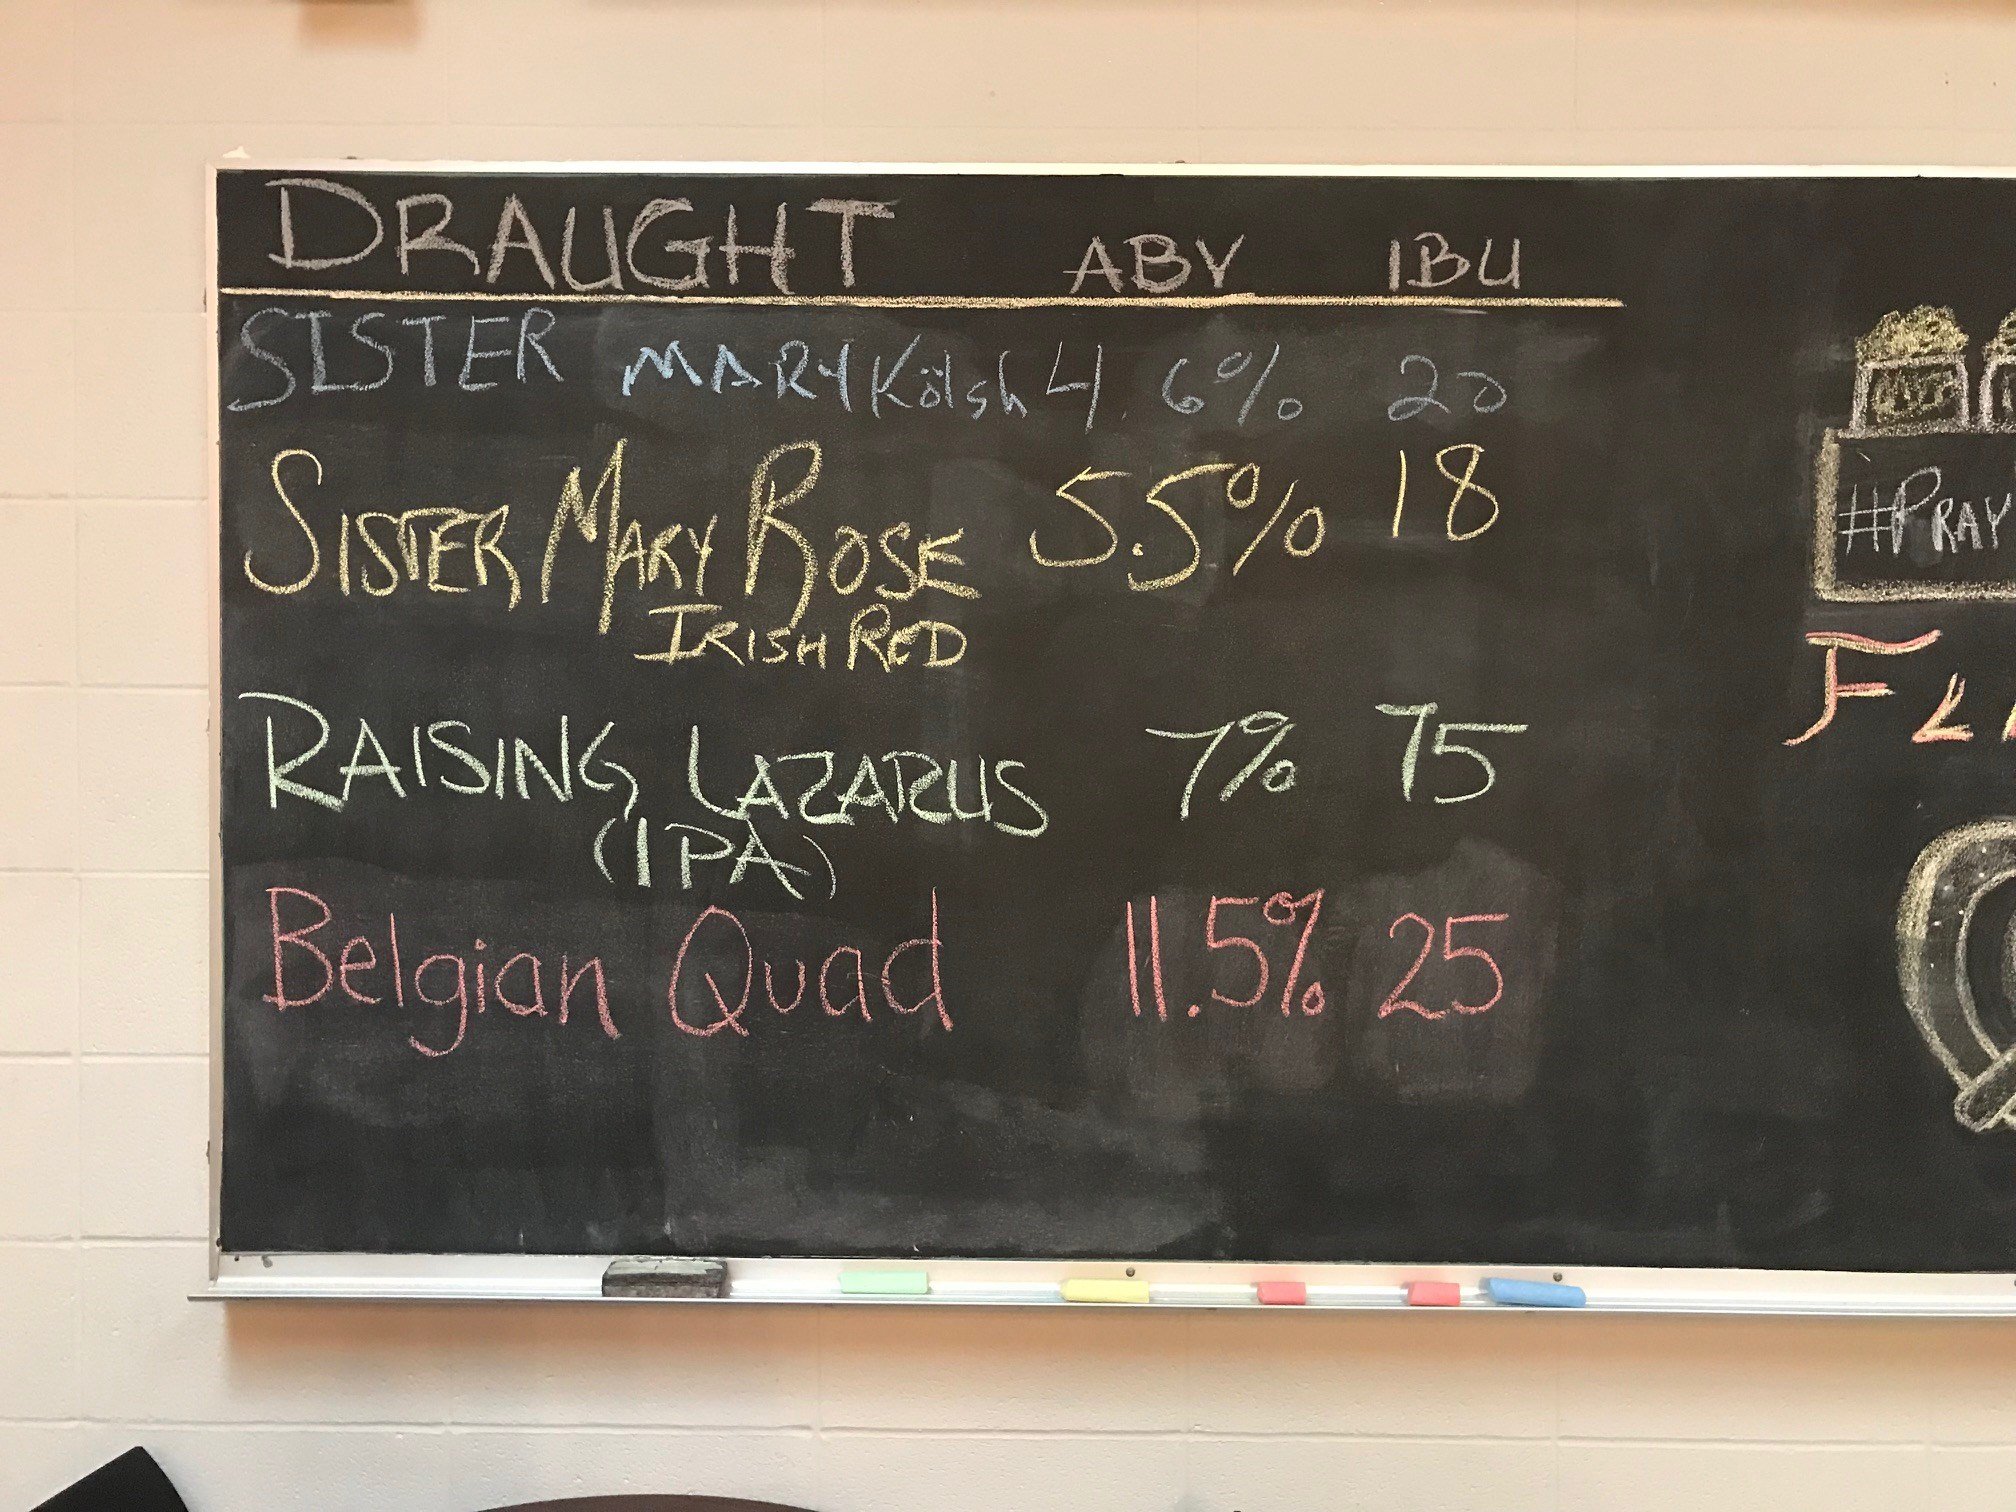 DRAUGHT ABV IBU
SISTER MARY Kölsh 4.6% 20
SISTER MARY ROSE 5.5% 18
IRISH RED
RAISING LAZARUS 7% 75
(IPA)
Belgian Quad 11.5% 25
#PRAY